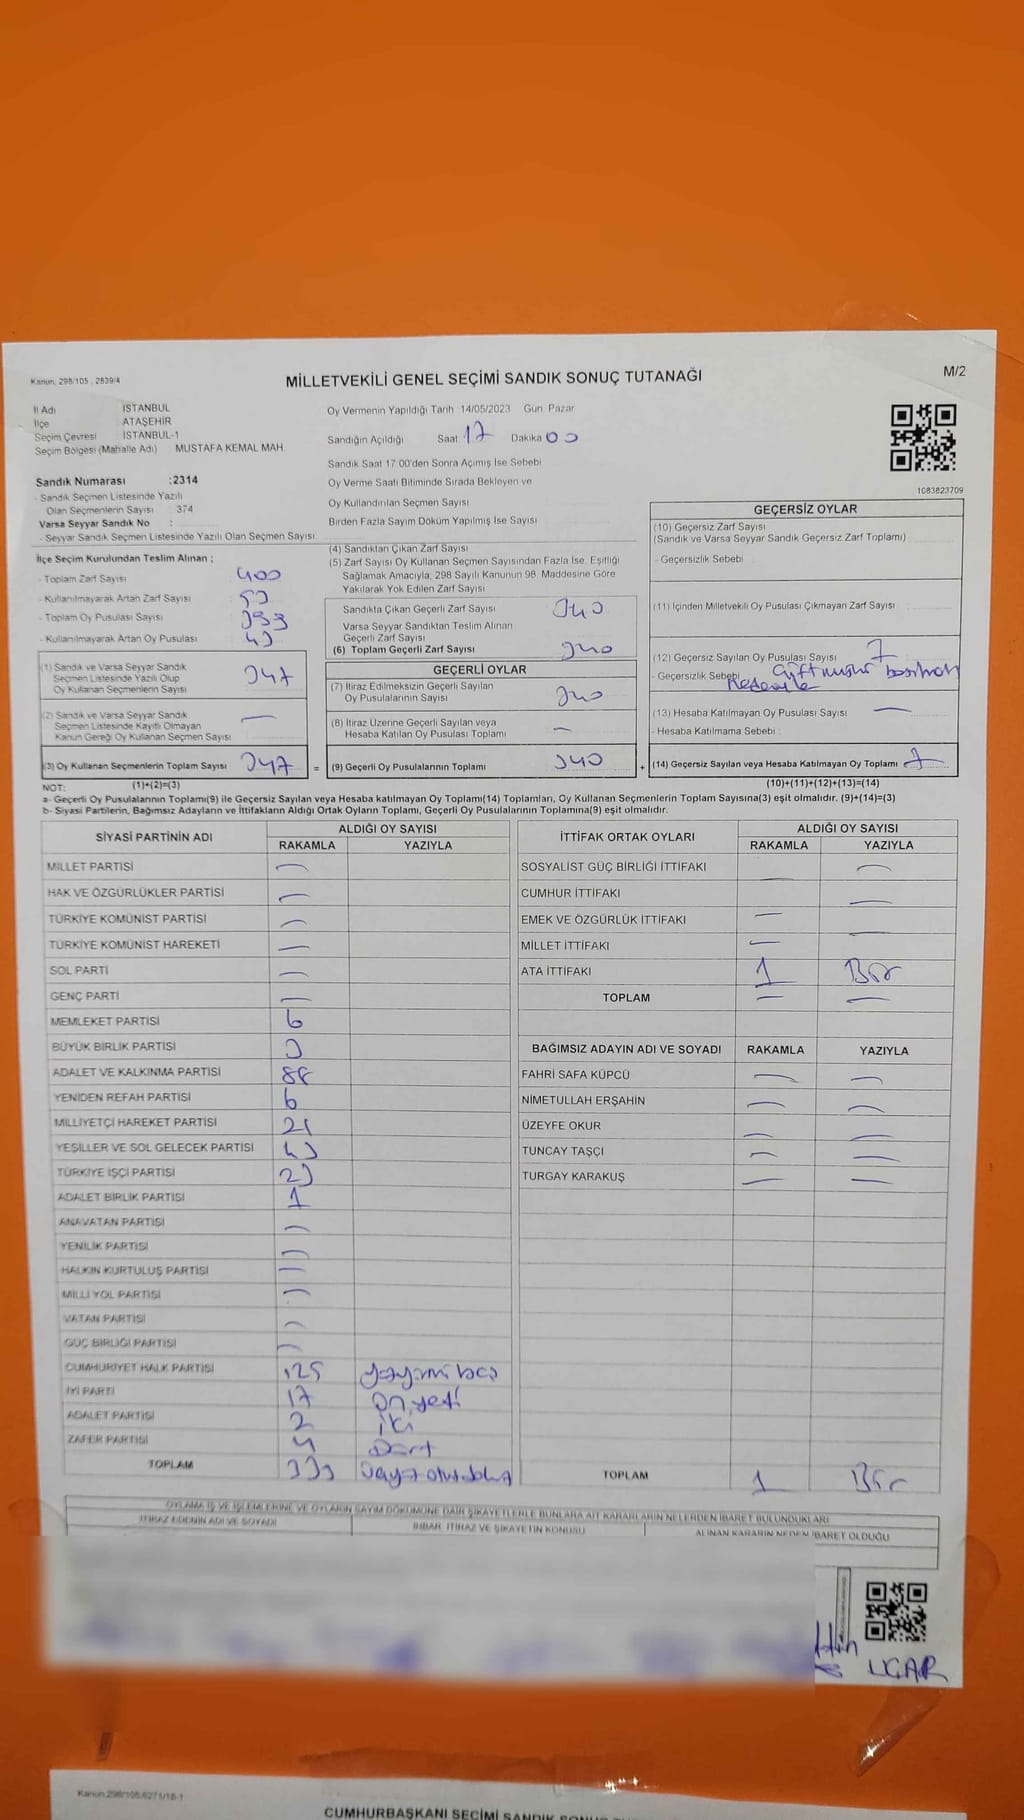 Kanun, 298/105 , 2839/4
MİLLETVEKİLİ GENEL SEÇİMİ SANDIK SONUÇ TUTANAĞI
M/2
İl Adı İSTANBUL
İlçe ATAŞEHİR
Seçim Çevresi İSTANBUL-1
Seçim Bölgesi (Mahalle Adı) MUSTAFA KEMAL MAH
Oy Vermenin Yapıldığı Tarih :14/05/2023 Gün: Pazar
Sandığın Açıldığı Saat 17 Dakika 00
Sandık Saat 17:00'den Sonra Açımış İse Sebebi
Oy Verme Saati Bitiminde Sırada Bekleyen ve
Oy Kullandırılan Seçmen Sayısı
Birden Fazla Sayım Döküm Yapılmış İse Sayısı
1083823709
Sandık Numarası :2314
- Sandık Seçmen Listesinde Yazılı
Olan Seçmenlerin Sayısı : 374
Varsa Seyyar Sandık No :
- Seyyar Sandık Seçmen Listesinde Yazılı Olan Seçmen Sayısı
İlçe Seçim Kurulundan Teslim Alınan ;
- Toplam Zarf Sayısı 400
- Kullanılmayarak Artan Zarf Sayısı 53
- Toplam Oy Pusulası Sayısı 393
- Kullanılmayarak Artan Oy Pusulası
(1) Sandık ve Varsa Seyyar Sandık
Seçmen Listesinde Yazılı Olup
Oy Kullanan Seçmenlerin Sayısı 347
(2) Sandık ve Varsa Seyyar Sandık
Seçmen Listesinde Kayıtlı Olmayan
Kanun Gereği Oy Kullanan Seçmen Sayısı —
(3) Oy Kullanan Seçmenlerin Toplam Sayısı 347 =
(4) Sandıktan Çıkan Zarf Sayısı
(5) Zarf Sayısı Oy Kullanan Seçmen Sayısından Fazla İse, Eşitliği
Sağlamak Amacıyla; 298 Sayılı Kanunun 98. Maddesine Göre
Yakılarak Yok Edilen Zarf Sayısı
Sandıkta Çıkan Geçerli Zarf Sayısı 340
Varsa Seyyar Sandıktan Teslim Alınan
Geçerli Zarf Sayısı
(6) Toplam Geçerli Zarf Sayısı 340
GEÇERLİ OYLAR
(7) İtiraz Edilmeksizin Geçerli Sayılan
Oy Pusulalarının Sayısı 340
(8) İtiraz Üzerine Geçerli Sayılan veya
Hesaba Katılan Oy Pusulası Toplamı —
(9) Geçerli Oy Pusulalarının Toplamı 340 +
GEÇERSİZ OYLAR
(10) Geçersiz Zarf Sayısı
(Sandık ve Varsa Seyyar Sandık Geçersiz Zarf Toplamı)
- Geçersizlik Sebebi
(11) İçinden Milletvekili Oy Pusulası Çıkmayan Zarf Sayısı
(12) Geçersiz Sayılan Oy Pusulası Sayısı 7
- Geçersizlik Sebebi Çift mühür
nedeniyle
(13) Hesaba Katılmayan Oy Pusulası Sayısı —
- Hesaba Katılmama Sebebi :
(14) Geçersiz Sayılan veya Hesaba Katılmayan Oy Toplamı 7
NOT: (1)+(2)=(3) (10)+(11)+(12)+(13)=(14)
a- Geçerli Oy Pusulalarının Toplamı(9) ile Geçersiz Sayılan veya Hesaba katılmayan Oy Toplamı(14) Toplamları, Oy Kullanan Seçmenlerin Toplam Sayısına(3) eşit olmalıdır. (9)+(14)=(3)
b- Siyasi Partilerin, Bağımsız Adayların ve İttifakların Aldığı Ortak Oyların Toplamı, Geçerli Oy Pusulalarının Toplamına(9) eşit olmalıdır.
SİYASİ PARTİNİN ADI ALDIĞI OY SAYISI
RAKAMLA YAZIYLA
MİLLET PARTİSİ —
HAK VE ÖZGÜRLÜKLER PARTİSİ —
TÜRKİYE KOMÜNİST PARTİSİ —
TÜRKİYE KOMÜNİST HAREKETİ —
SOL PARTİ —
GENÇ PARTİ —
MEMLEKET PARTİSİ 6
BÜYÜK BİRLİK PARTİSİ 3
ADALET VE KALKINMA PARTİSİ 88
YENİDEN REFAH PARTİSİ 6
MİLLİYETÇİ HAREKET PARTİSİ 21
YEŞİLLER VE SOL GELECEK PARTİSİ 43
TÜRKİYE İŞÇİ PARTİSİ 23
ADALET BİRLİK PARTİSİ 1
ANAVATAN PARTİSİ —
YENİLİK PARTİSİ —
HALKIN KURTULUŞ PARTİSİ —
MİLLİ YOL PARTİSİ —
VATAN PARTİSİ —
GÜÇ BİRLİĞİ PARTİSİ —
CUMHURİYET HALK PARTİSİ 125 yüzyirmi beş
İYİ PARTİ 17 On yedi
ADALET PARTİSİ 2 iki
ZAFER PARTİSİ 4 Dört
TOPLAM 339 üçyüz otuz dokuz
İTTİFAK ORTAK OYLARI ALDIĞI OY SAYISI
RAKAMLA YAZIYLA
SOSYALİST GÜÇ BİRLİĞİ İTTİFAKI —
CUMHUR İTTİFAKI —
EMEK VE ÖZGÜRLÜK İTTİFAKI —
MİLLET İTTİFAKI — —
ATA İTTİFAKI 1 Bir
TOPLAM — —
BAĞIMSIZ ADAYIN ADI VE SOYADI RAKAMLA YAZIYLA
FAHRİ SAFA KÜPCÜ — —
NİMETULLAH ERŞAHİN — —
ÜZEYFE OKUR — —
TUNCAY TAŞÇI — —
TURGAY KARAKUŞ — —
TOPLAM 1 Bir
OYLAMA İŞ VE İŞLEMLERİNE VE OYLARIN SAYIM DÖKÜMÜNE DAİR ŞİKAYETLERLE BUNLARA AİT KARARLARIN NELERDEN İBARET BULUNDUKLARI
İTİRAZ EDENİN ADI VE SOYADI İHBAR, İTİRAZ VE ŞİKAYETİN KONUSU ALINAN KARARIN NEDEN İBARET OLDUĞU
UÇAR
Kanun,298/105,6271/18-1
CUMHURBAŞKANI SEÇİMİ SANDIK SONUÇ